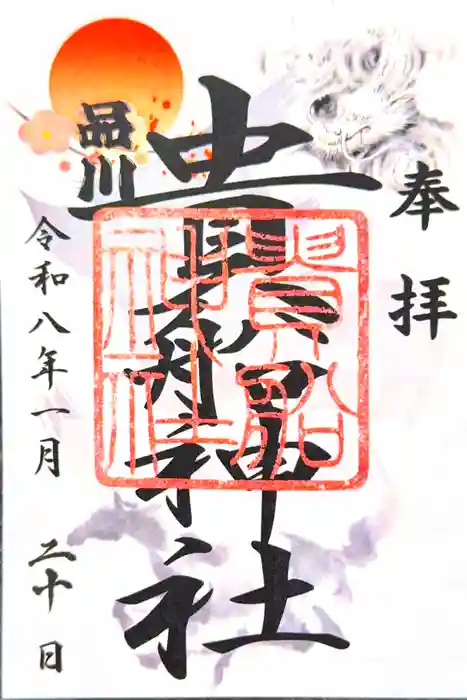 奉拝
品川
貴船神社
貴船
神社
令和八年一月二十日